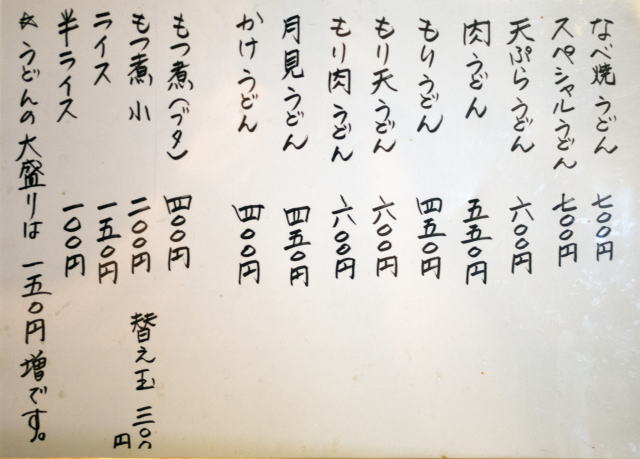 なべ焼うどん 七〇〇円
スペシャルうどん 七〇〇円
天ぷらうどん 六〇〇円
肉うどん 五五〇円
もりうどん 四五〇円
もり天うどん 六〇〇円
もり肉うどん 六〇〇円
月見うどん 四五〇円
かけうどん 四〇〇円
もつ煮(ブタ) 四〇〇円
もつ煮 小 二〇〇円
替え玉 三〇〇円
ライス 一五〇円
半ライス 一〇〇円
うどんの大盛りは 一五〇円増です。